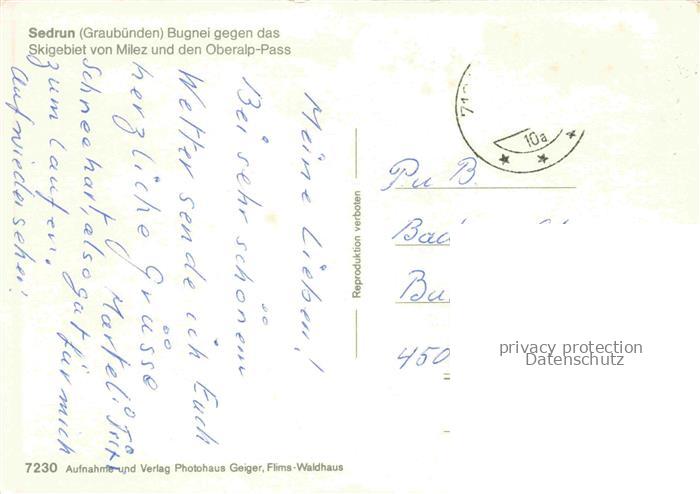 Sedrun (Graubünden) Bugnei gegen das
Skigebiet von Milez und den Oberalp-Pass
Meine Lieben!
Bei sehr schönem
Wetter sende ich Euch
herzliche Grüsse
Schnee hart, also gut für mich
zum laufen.
Auf wiedersehen!
Reproduktion verboten
71
10a
P. u B.
Bu
450
privacy protection
Datenschutz
7230 Aufnahme und Verlag Photohaus Geiger, Flims-Waldhaus